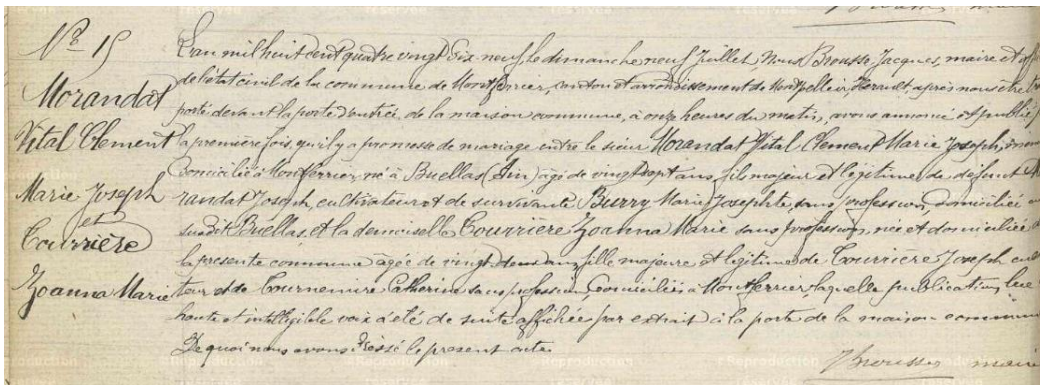 Nº 15
Morandat
Vital Clement
Marie Joseph
et
Courrière
Joanna Marie
L'an mil huit cent quatre vingt dix neuf, le dimanche neuf Juillet, Nous Brousse Jacques, maire et
de l'état civil de la commune de Montferrier, canton et arrondissement de Montpellier, Hérault, après nous être
porté devant la porte d'entrée de la maison commune, à onze heures du matin, avons annoncé et publié p
la première fois, qu'il y a promesse de mariage entre le sieur Morandat Vital Clement Marie Joseph,
domicilié à Montferrier, né à Buellas (Ain) âgé de vingt sept ans, fils majeur et légitime de défunt
randat Joseph, cultivateur et de survivante Burry Marie Josephte, sans profession, domiciliée
susdit Buellas, et la demoiselle Courrière Joanna Marie sans profession, née et domiciliée
la présente commune âgée de vingt deux ans, fille majeure et légitime de Courrière Joseph cul
teur et de Cournemire Catherine sans profession, domiciliés à Montferrier, laquelle publication, lue
haute et intelligible voix a été de suite affichée par extrait à la porte de la maison commun
De quoi nous avons dressé le présent acte.
Brousse maire